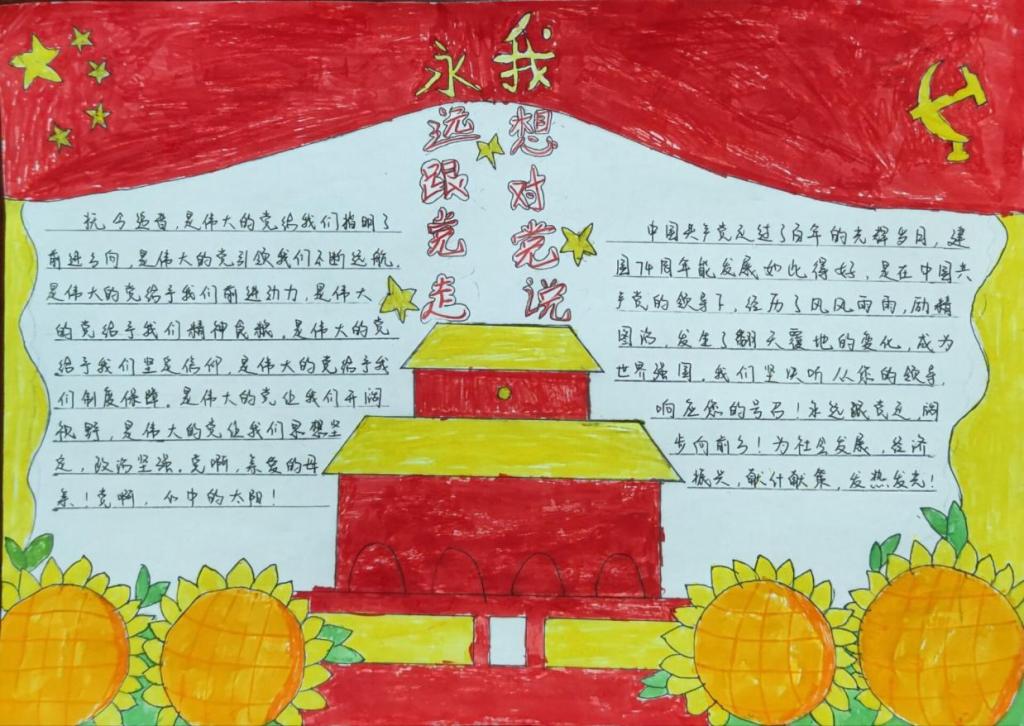 我想对党说
永远跟党走
抚今追昔，是伟大的党给我们指明了
前进方向，是伟大的党引领我们不断远航，
是伟大的党给予我们前进动力，是伟大
的党给予我们精神食粮，是伟大的党
给予我们坚定信仰，是伟大的党给予我
们制度保障，是伟大的党让我们开阔
视野，是伟大的党让我们思想坚
定，政治坚强。党啊，亲爱的母
亲！党啊，心中的太阳！
中国共产党走过了百年的光辉岁月，建
国74周年能发展如此得好，是在中国共
产党的领导下，经历了风风雨雨，励精
图治，发生了翻天覆地的变化，成为
世界强国，我们坚决听从您的领导，
响应您的号召！永远跟党走，阔
步向前方！为社会发展，经济
振兴，献计献策，发热发光！